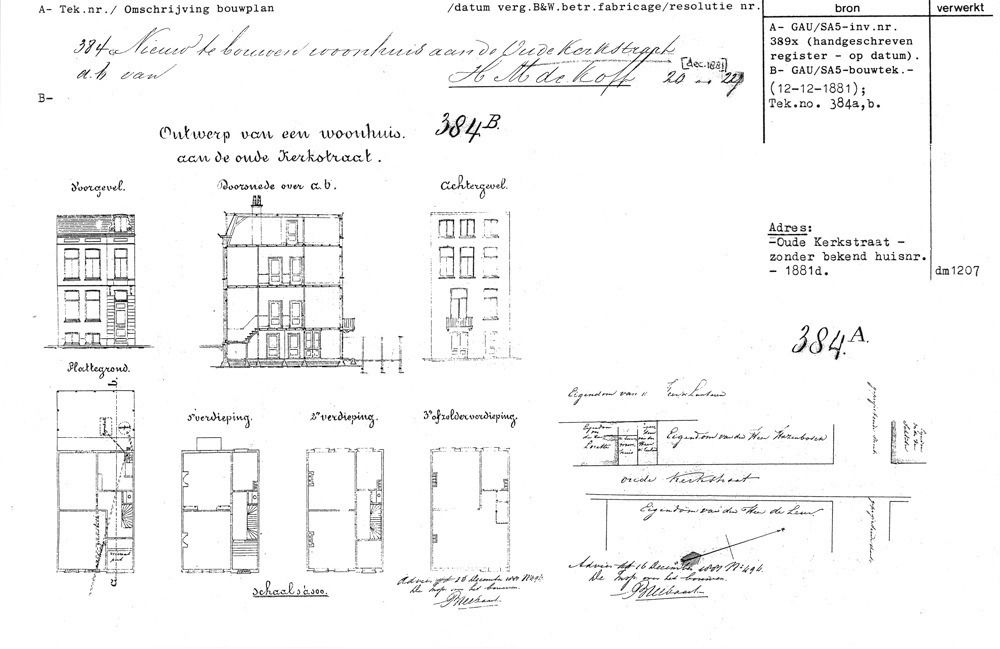 A- Tek.nr./ Omschrijving bouwplan
/datum verg.B&W.betr.fabricage/resolutie nr.
bron
verwerkt
384 Nieuw te bouwen woonhuis aan de Oude Kerkstraat
d.h van H M de Koff 20 22
[dec.1881]
A- GAU/SA5-inv.nr.
389x (handgeschreven
register - op datum).
B- GAU/SA5-bouwtek.-
(12-12-1881);
Tek.no. 384a,b.
B-
384 B.
Ontwerp van een woonhuis.
aan de oude Kerkstraat.
Voorgevel.
Doorsnede over a.b.
Achtergevel.
Adres:
-Oude Kerkstraat -
zonder bekend huisnr.
- 1881d.
dm1207
384.A.
Plattegrond.
b.
a.
1e verdieping.
2e verdieping.
3e of zolderverdieping.
schaal 1 à 200.
Eigendom van
Eigendom van den Heer
oude Kerkstraat
Eigendom van den Heer de Leur
Advies 16 December 1881 No 494.
De Insp. van het bouwen.
Advies 16 December 1881 No 494.
De Insp. van het bouwen.